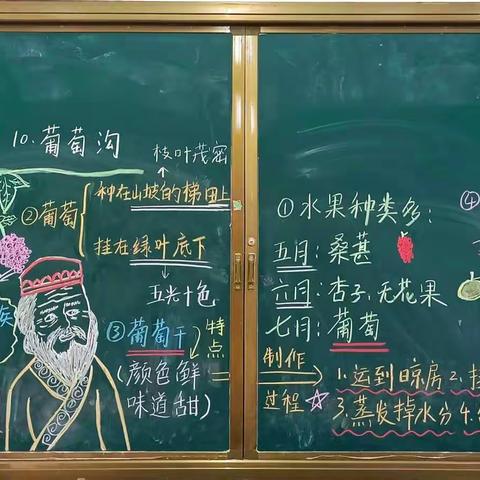 10.葡萄沟
枝叶茂密
②葡萄
种在山坡的梯田上
挂在绿叶底下
五光十色
③葡萄干
特点
(颜色鲜
味道甜)
①水果种类多：
五月：桑葚
六月：杏子、无花果
七月：葡萄
制作
过程
1.运到晾房 2.
3.蒸发掉水分 4.
④